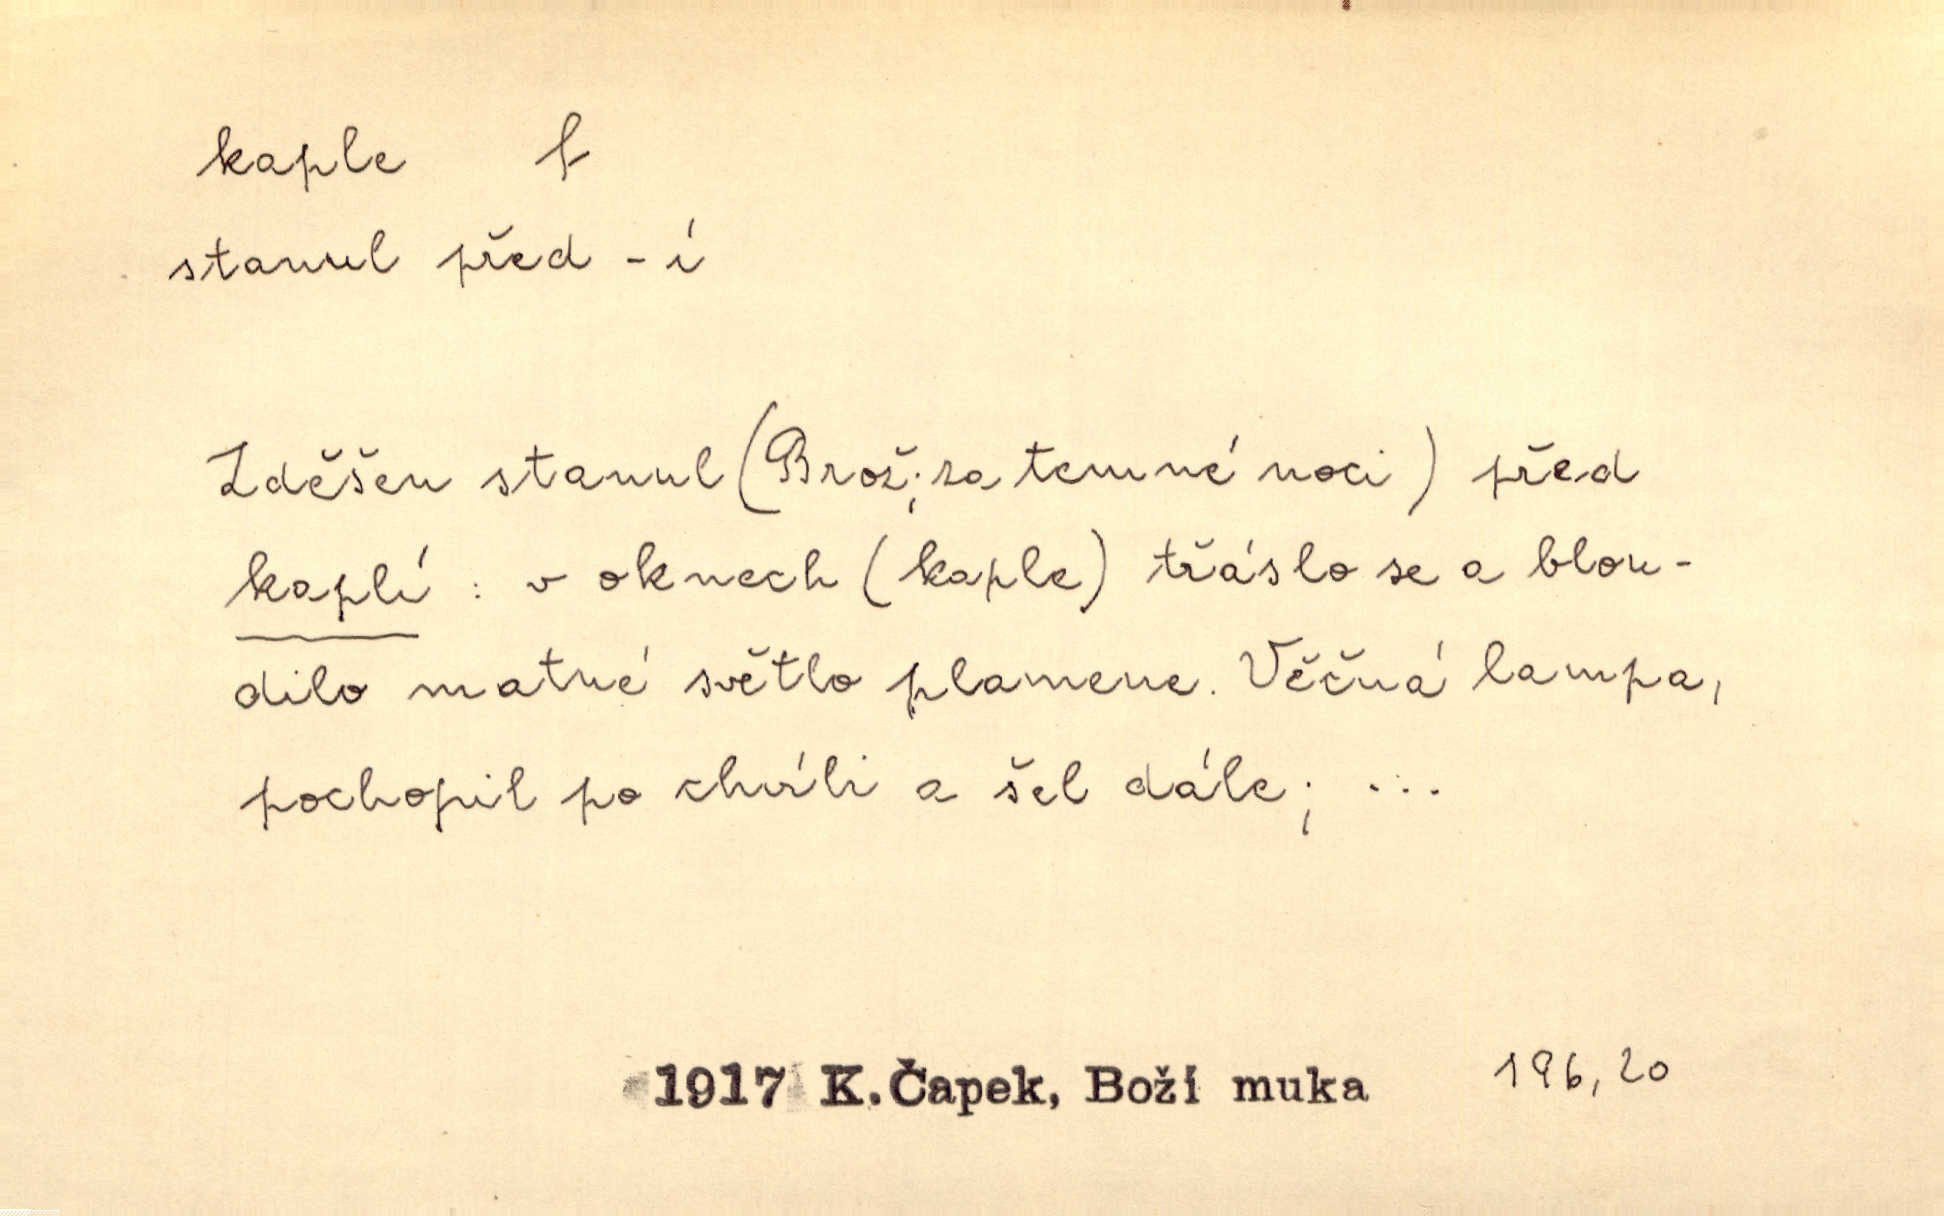 kaple f
stanul před -í
Zděšen stanul (Brož; za temné noci) před
kaplí : v oknech (kaple) třáslo se a blou-
dilo matné světlo plamene. Věčná lampa,
pochopil po chvíli a šel dále; ...
1917 K. Čapek, Boží muka 196, 20